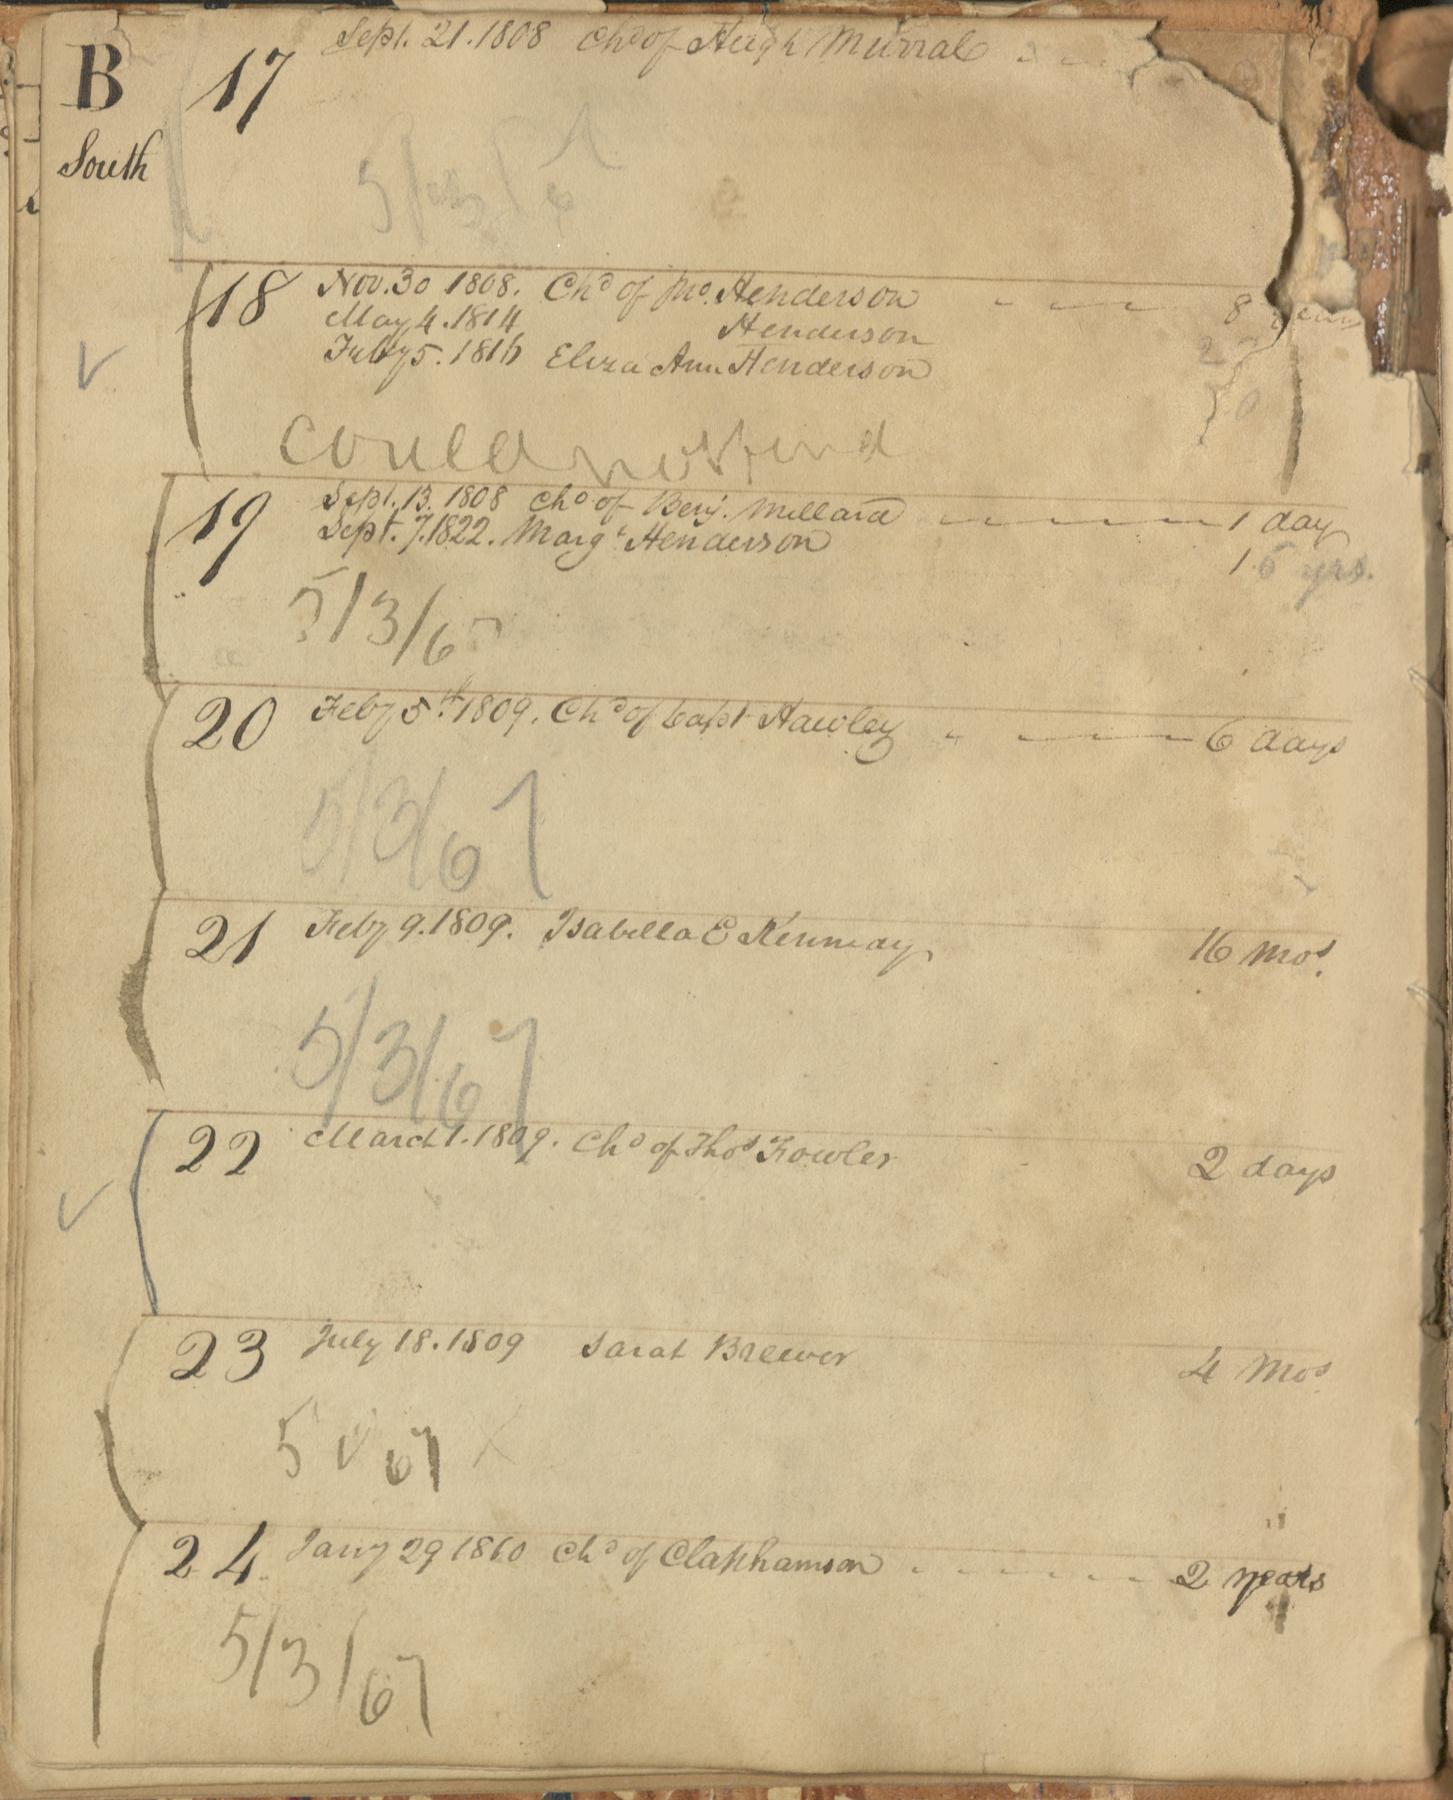 B
South
17 Sept. 21. 1808 Chd of Hugh Murral
18 Nov. 30 1808. Chd of Jno. Henderson 8 years
May 4. 1814 Henderson
Feby 5. 1816 Eliza Ann Henderson
could not find
19 Sept. 13. 1808 Chd of Benj. Millard 1 day
Sept. 7. 1822. Margt Henderson 1 6 yrs.
5/3/67
20 Feby 5th 1809. Chd of Capt Hawley 6 days
5/3/67
21 Feby 9. 1809. Isabella E Kennedy 16 mos.
5/3/67
22 March 1. 1809. Chd of Thos Fowler 2 days
23 July 18. 1809 Sarah Brewer 4 Mos
5 67
24 Jany 29 1810 Chd of Clathhamson 2 years
5/3/67